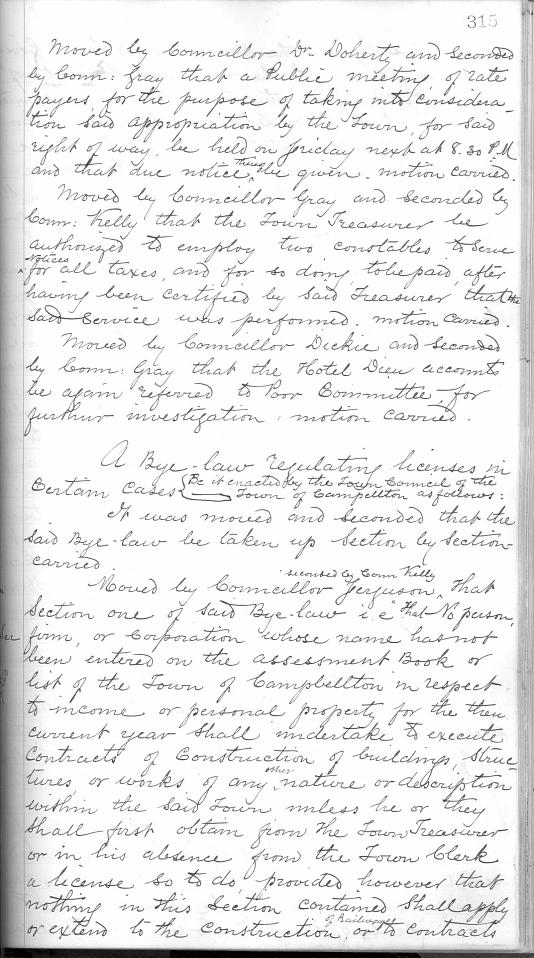 315
Moved by Councillor Dr. Doherty and Seconded
by Coun: Gray that a Public meeting of rate
payers, for the purpose of taking into considera-
tion said appropriation by the Town, for said
right of way, be held on Friday next at 8.30 P.M
and that due notice thereof be given. motion carried.
Moved by Councillor Gray and Seconded by
Coun: Kelly that the Town Treasurer be
authorized to employ two constables to serve
notices
for all taxes, and for so doing, to be paid, after
having been certified by said Treasurer that the
said Service was performed. motion carried.
Moved by Councillor Dickie and Seconded
by Coun: Gray that the Hotel Dieu accounts
be again referred to Poor Committee, for
furthur investigation. motion carried.
A Bye-law regulating licenses in
Certain Cases { Be it enacted by the Town Council of the
Town of Campellton as follows:
It was moved and seconded that the
said Bye-law be taken up Section by Section-
carried.
seconed by Coun Kelly
Moved by Councillor Ferguson, That
Section one of said Bye-law i.e That No person,
firm, or Corporation whose name has not
been entered on the assessment Book or
list of the Town of Campbellton in respect
to income or personal property for the then
current year shall undertake to execute
Contracts of Construction of buildings, struc-
tures, or works of any other nature or description
within the said Town unless he or they
shall first obtain from the Town Treasurer
or in his absence from the Town Clerk
a license so to do, provided however that
nothing in this Section contained shall apply
or extend to the construction of Railways, or to contracts